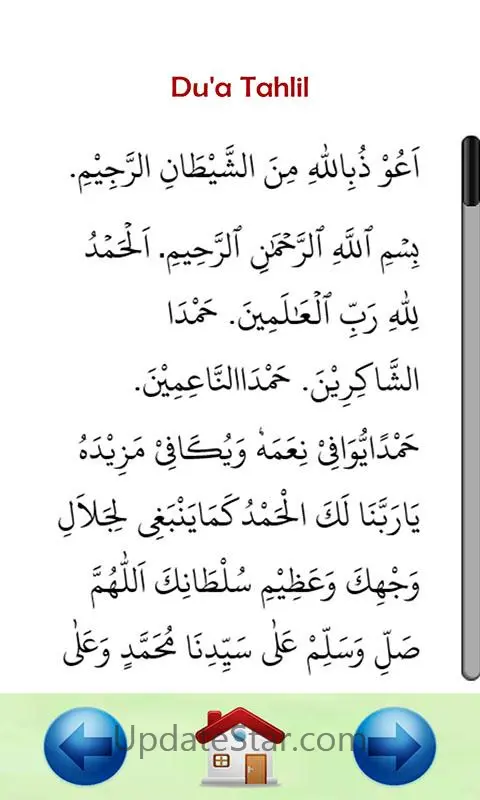 Du'a Tahlil
اَعُوْ ذُبِاللهِ مِنَ الشَّيْطَانِ الرَّجِيْمِ.
بِسْمِ ٱللَّهِ ٱلرَّحْمَٰنِ ٱلرَّحِيمِ. اَلْحَمْدُ
لِلّٰهِ رَبِّ ٱلْعَـٰلَمِينَ. حَمْدَا
الشَّاكِرِيْنَ. حَمْدَاالنَّاعِمِيْنَ.
حَمْدًايُّوَافِىْ نِعَمَهٗ وَيُكَافِىْ مَزِيْدَهُ
يَارَبَّنَا لَكَ الْحَمْدُ كَمَايَنْبَغِى لِجَلاَلِ
وَجْهِكَ وَعَظِيْمِ سُلْطَانِكَ اَللّٰهُمَّ
صَلِّ وَسَلِّمْ عَلٰى سَيِّدِنَا مُحَمَّدٍ وَعَلٰى
UpdateStar.com